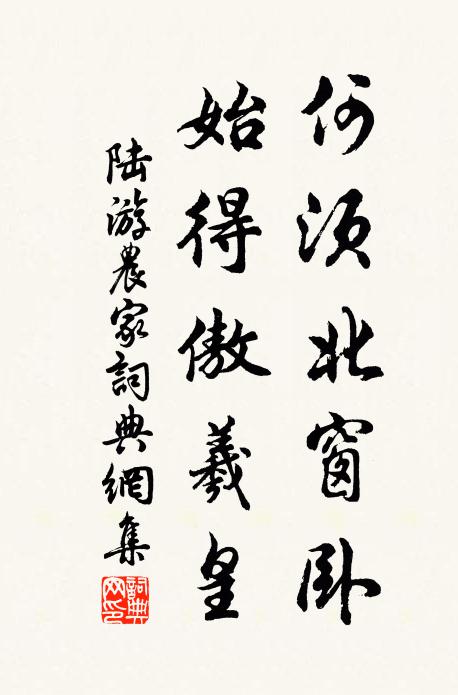 何須北窗卧
始得傲羲皇
陸游農家詞典網集
詞典網印